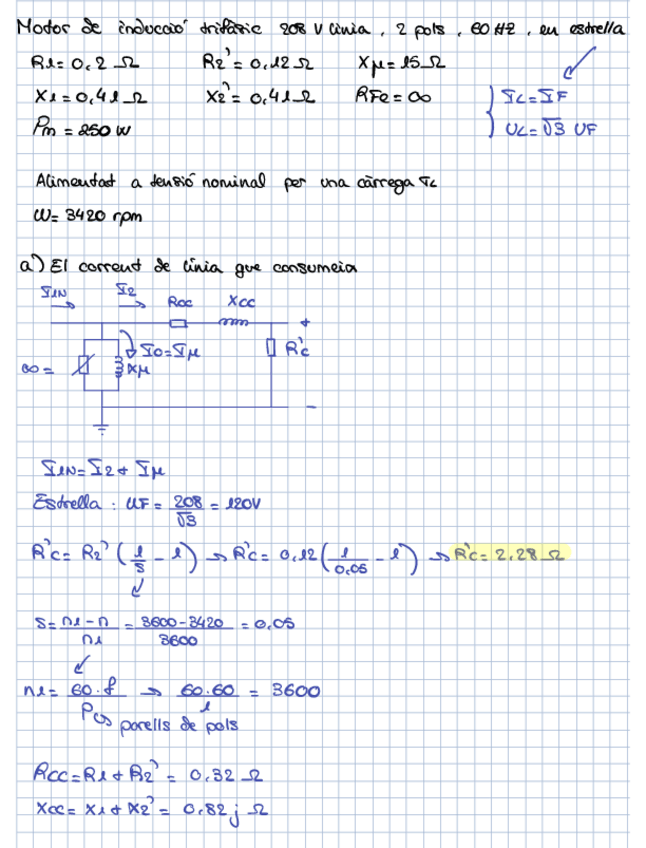 Motor de inducció trifàsic 208 V línia, 2 pols, 60 Hz, en estrella
R1 = 0,2 Ω R2' = 0,12 Ω Xμ = 15 Ω
X1 = 0,41 Ω X2' = 0,41 Ω RFe = ∞ IL = IF
Pm = 250 W UL = √3 UF
Alimentat a tensió nominal per una càrrega TL
W = 3420 rpm
a) El corrent de línia que consumeix
I1N I2 Rcc Xcc
+
Io = Iμ R'c
∞ = Xμ
-
I1N = I2 + Iμ
Estrella : UF = 208/√3 = 120V
R'c = R2' (1/s - 1) → R'c = 0,12 (1/0,05 - 1) → R'c = 2,28 Ω
s = n1 - n / n1 = 3600 - 3420 / 3600 = 0,05
n1 = 60·f / P → 60·60 / 1 = 3600
parells de pols
Rcc = R1 + R2' = 0,32 Ω
Xcc = X1 + X2' = 0,82j Ω